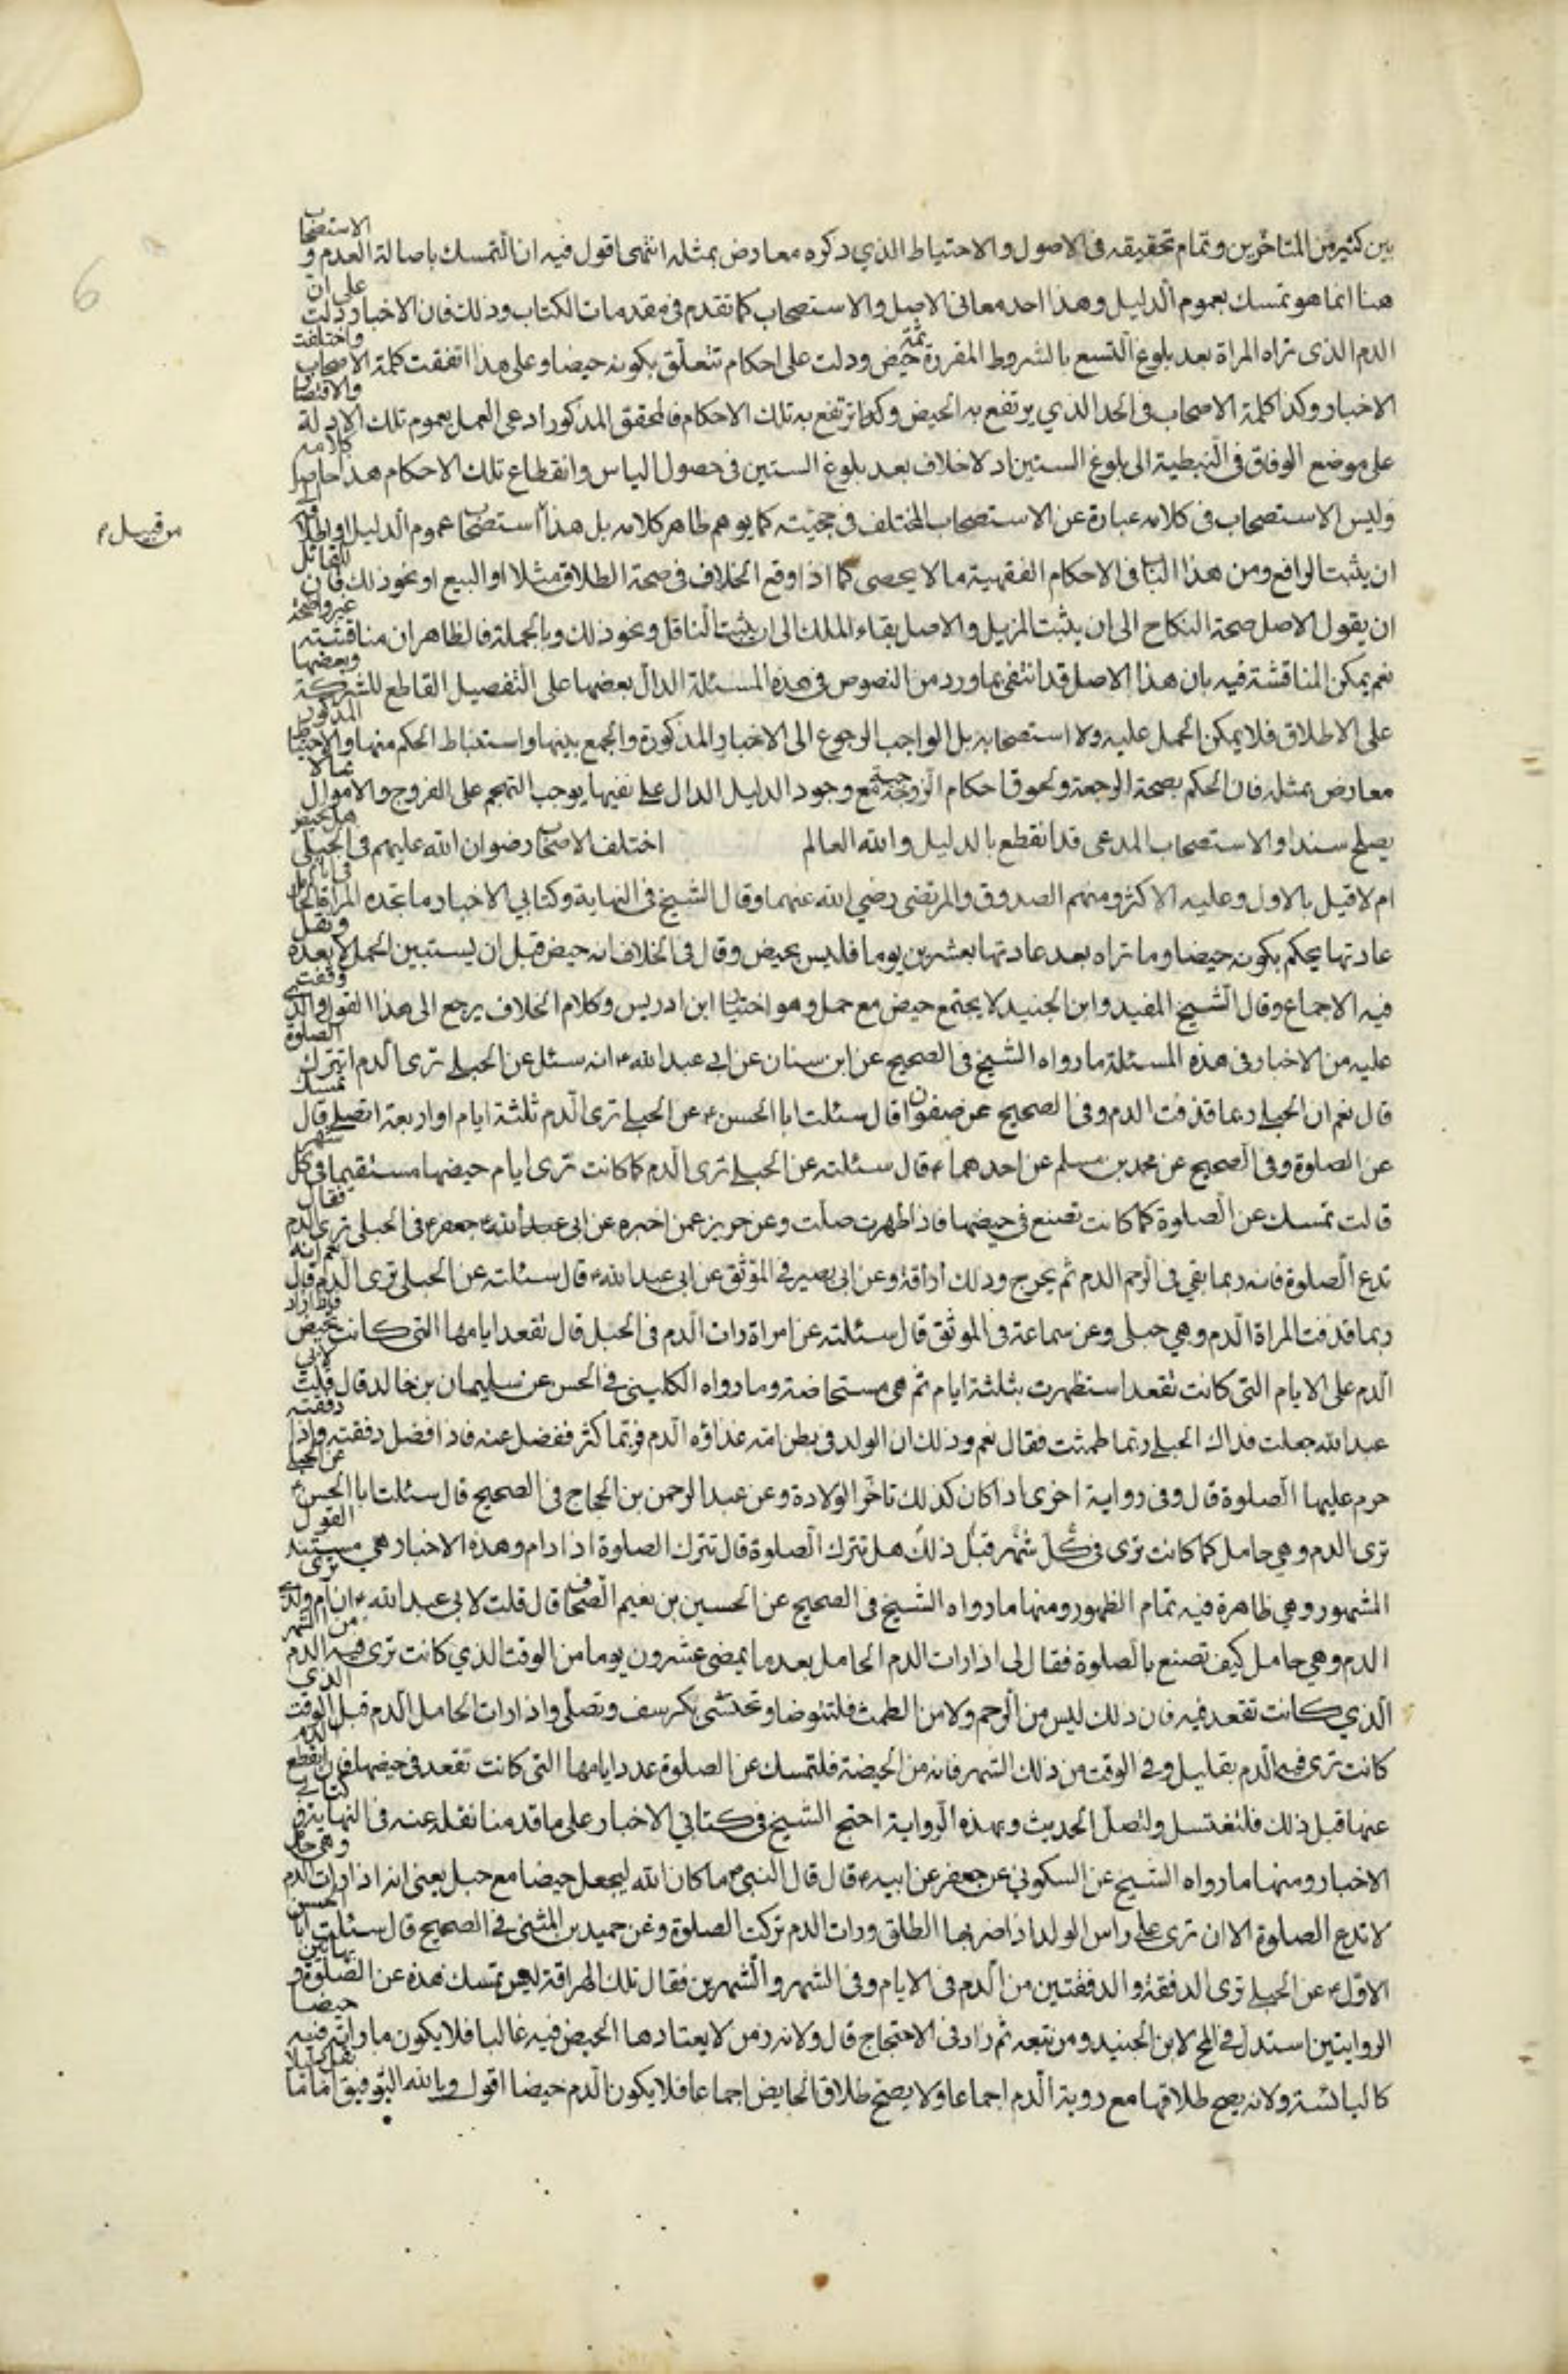 بين كثير من المتاخرين وتمام تحقيقه فى الاصول والاحتياط الذي ذكره معارض بمثله انتهى اقول فيه ان التمسك باصالة العدم و الاستصحاب
هنا انما هو تمسك بعموم الدليل وهذا احد معانى الاصل والاستصحاب كما تقدم فى مقدمات الكتاب وذلك فان الاخبار دلت على ان
الدم الذى تراه المراة بعد بلوغ التسع بالشروط المقررة ثمة حيض ودلت على احكام تتعلق بكونه حيضا وعلى هذا اتفقت كلمة الاصحاب واختلفت
الاخبار وكذا كلمة الاصحاب فى الحد الذي يرتفع به الحيض وكذا ترتفع به تلك الاحكام فالمحقق المذكور ادعى العمل بعموم تلك الادلة والاقتصار
على موضع الوفاق فى النبطية الى بلوغ الستين اذ لا خلاف بعد بلوغ الستين فى حصول الياس وانقطاع تلك الاحكام هذا حاصل كلامه
وليس الاستصحاب فى كلامه عبارة عن الاستصحاب المختلف فى حجيته كما يوهم ظاهر كلامه بل هذا استصحاب عموم الدليل او اطلاقه الى
من قبيل م
ان يثبت الرافع ومن هذا الباب فى الاحكام الفقهية ما لا يحصى كما اذا وقع الخلاف فى صحة الطلاق مثلا او البيع او نحو ذلك فان للقائل
ان يقول الاصل صحة النكاح الى ان يثبت المزيل والاصل بقاء الملك الى ان يثبت الناقل ونحو ذلك وبالجملة فالظاهر ان مناقشته غير واضحة
نعم يمكن المناقشة فيه بان هذا الاصل قد انتفى بما ورد من النصوص فى هذه المسئلة الدال بعضها على التفصيل القاطع للشركة وبعضها
على الاطلاق فلا يمكن الحمل عليه ولا استصحابه بل الواجب الرجوع الى الاخبار المذكورة والجمع بينها واستنباط الحكم منها والاحتياط المذكور
معارض بمثله فان الحكم بصحة الرجعة ولحوق احكام الزوجية مع وجود الدليل الدال على نفيها يوجب التهجم على الفروج والاموال بما لا
يصلح سندا والاستصحاب المدعى قد انقطع بالدليل والله العالم اختلف الاصحاب رضوان الله عليهم فى الحبلى هل تحيض
ام لا قيل بالاول وعليه الاكثر ومنهم الصدوق والمرتضى رضي الله عنهما وقال الشيخ فى النهاية وكتابي الاخبار ما تجده المراة الحامل فى ايام
عادتها يحكم بكونه حيضا وما تراه بعد عادتها بعشرين يوما فليس بحيض وقال فى الخلاف انه حيض قبل ان يستبين الحمل لا بعده ونقل
فيه الاجماع وقال الشيخ المفيد وابن الجنيد لا يجتمع حيض مع حمل وهو اختيار ابن ادريس وكلام الخلاف يرجع الى هذا القول والذى وقفت
عليه من الاخبار فى هذه المسئلة ما رواه الشيخ فى الصحيح عن ابن سنان عن ابى عبد الله ع انه سئل عن الحبلى ترى الدم اتترك الصلوة
قال نعم ان الحبلى ربما قذفت الدم وفى الصحيح عن صفوان قال سئلت ابا الحسن ع عن الحبلى ترى الدم ثلثة ايام او اربعة اتصلى قال تمسك
عن الصلوة وفى الصحيح عن محمد بن مسلم عن احدهما ع قال سئلته عن الحبلى ترى الدم كما كانت ترى ايام حيضها مستقيما فى كل شهر
قالت تمسك عن الصلوة كما كانت تصنع فى حيضها فاذا طهرت صلت وعن حريز عمن اخبره عن ابى عبد الله وابى جعفر ع فى الحبلى ترى الدم فقال
تدع الصلوة فانه ربما بقي فى الرحم الدم ثم يخرج وذلك اراقة وعن ابى بصير فى الموثق عن ابى عبد الله ع قال سئلته عن الحبلى ترى الدم قال نعم انه
ربما قذفت المراة الدم وهي حبلى وعن سماعة فى الموثق قال سئلته عن امراة رات الدم فى الحبل قال تقعد ايامها التى كانت تحيض فاذا زاد
الدم على الايام التى كانت تقعد استظهرت بثلثة ايام ثم هى مستحاضة وما رواه الكلينى فى الحسن عن سليمان بن خالد قال قلت لابى
عبد الله جعلت فداك الحبلى ربما طمثت فقال نعم وذلك ان الولد فى بطن امه غذاؤه الدم فربما كثر ففضل عنه فاذا فضل دفقته واذا دفقته
حرم عليها الصلوة قال وفى رواية اخرى اذا كان كذلك تاخر الولادة وعن عبد الرحمن بن الحجاج فى الصحيح قال سئلت ابا الحسن ع عن الحبلى
ترى الدم وهي حامل كما كانت ترى فى كل شهر قبل ذلك هل تترك الصلوة قال تترك الصلوة اذا دام وهذه الاخبار هي مستند القول
المشهور وهي ظاهرة فيه تمام الظهور ومنها ما رواه الشيخ فى الصحيح عن الحسين بن نعيم الصحاف قال قلت لابى عبد الله ع ان ام ولدى ترى
الدم وهي حامل كيف تصنع بالصلوة فقال لى اذا رات الدم الحامل بعد ما يمضى عشرون يوما من الوقت الذي كانت ترى فيه الدم من الشهر
الذي كانت تقعد فيه فان ذلك ليس من الرحم ولا من الطمث فلتتوضا وتحتشى بكرسف وتصلى واذا رات الحامل الدم قبل الوقت الذى
كانت ترى فيه الدم بقليل وفى الوقت من ذلك الشهر فانه من الحيضة فلتمسك عن الصلوة عدد ايامها التى كانت تقعد فى حيضها فان انقطع الدم
عنها قبل ذلك فلتغتسل ولتصل الحديث وبهذه الرواية احتج الشيخ فى كتابي الاخبار على ما قدمنا نقله عنه فى النهاية و كتابى
الاخبار ومنها ما رواه الشيخ عن السكوني عن جعفر عن ابيه ع قال قال النبى ص ما كان الله ليجعل حيضا مع حبل يعنى انه اذا رات الدم وهى حامل
لا تدع الصلوة الا ان ترى على راس الولد اذا ضربها الطلق ورات الدم تركت الصلوة وعن حميد بن المثنى فى الصحيح قال سئلت ابا الحسن
الاول ع عن الحبلى ترى الدفقة والدفقتين من الدم فى الايام وفى الشهر والشهرين فقال تلك الهراقة ليس تمسك هذه عن الصلوة و بهاتين
الروايتين استدل فى المخ لابن الجنيد ومن تبعه ثم زاد فى الاحتجاج قال ولانه زمن لا يعتادها الحيض فيه غالبا فلا يكون ما راته فيه حيضا
كاليائسة ولانه يصح طلاقها مع روية الدم اجماعا ولا يصح طلاق الحايض اجماعا فلا يكون الدم حيضا اقول وبالله التوفيق اما ما